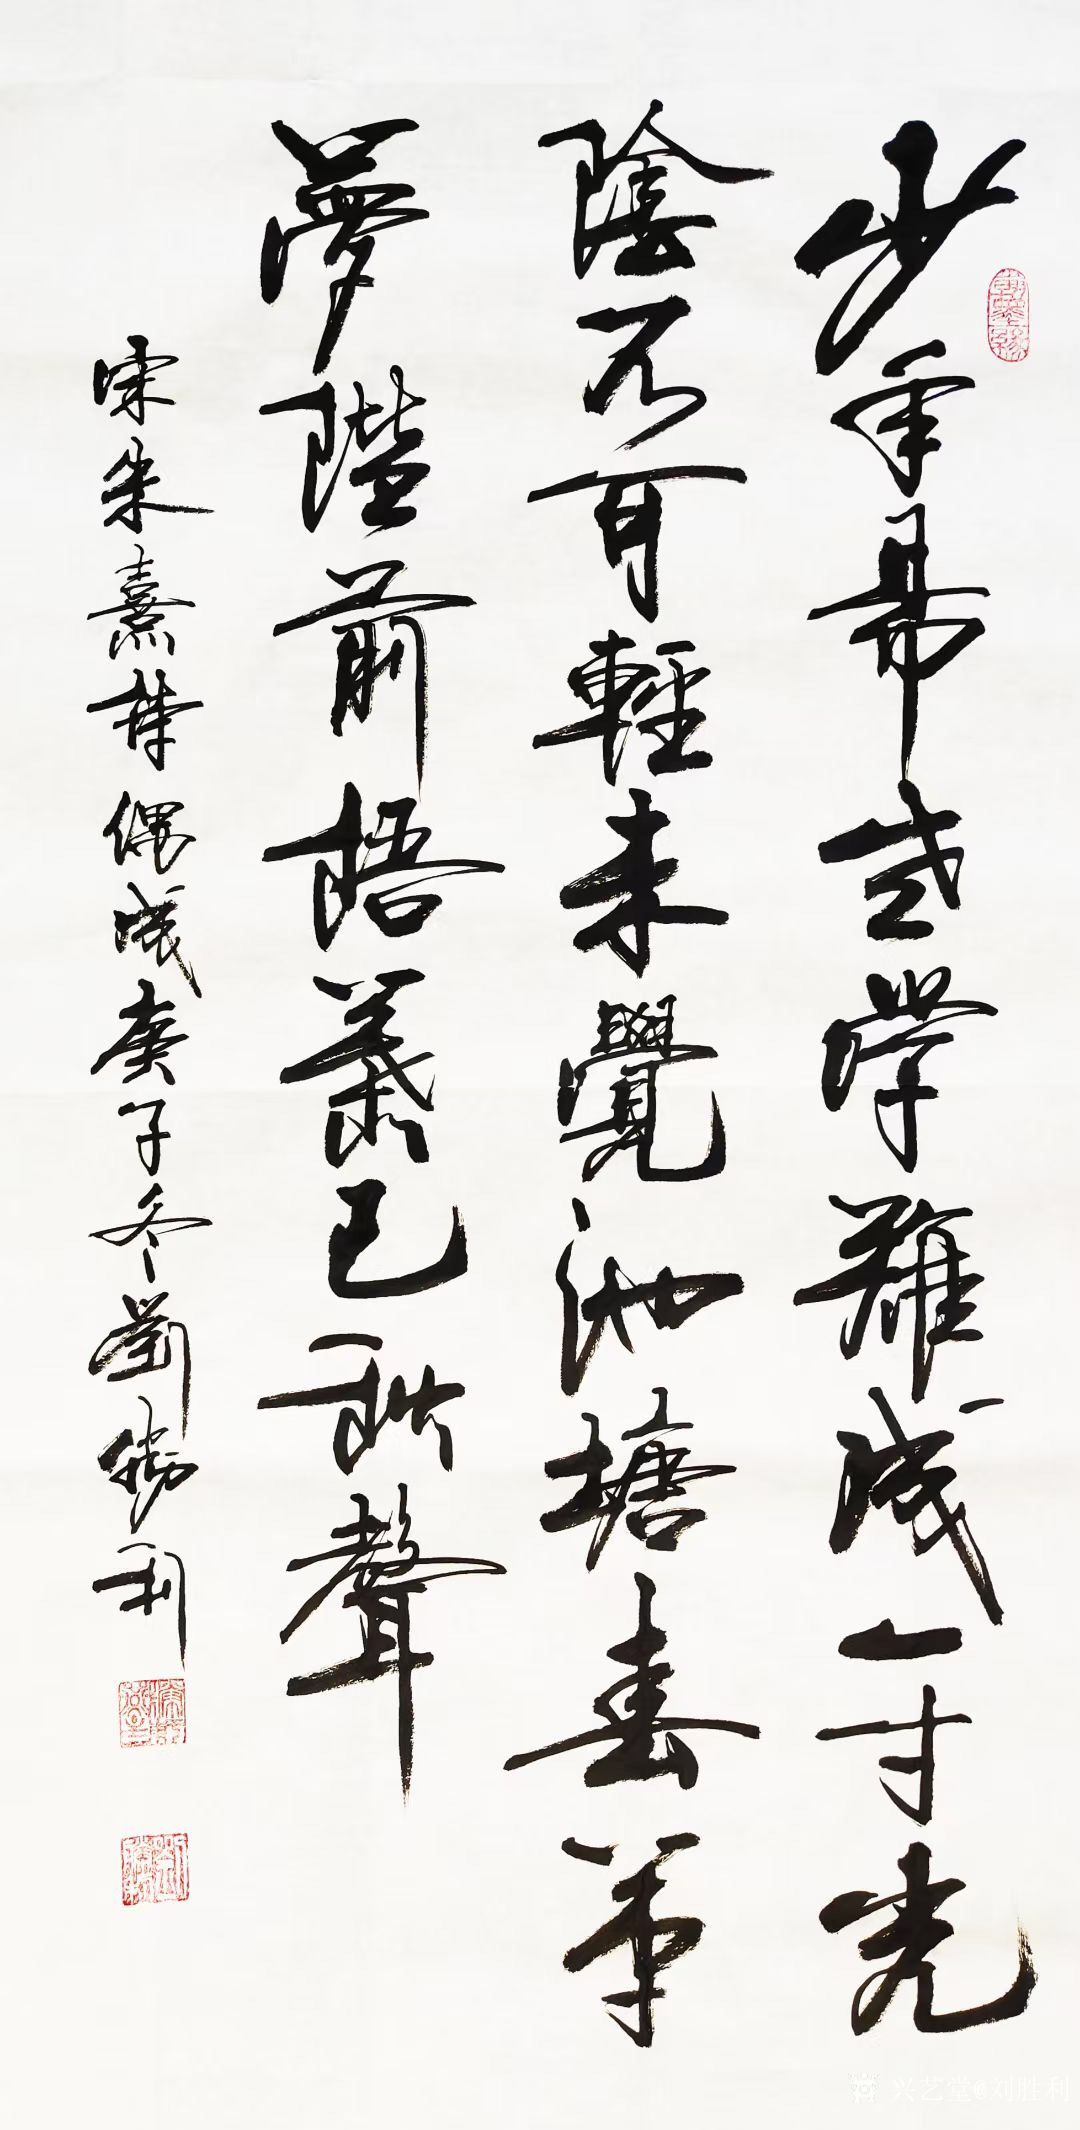 少年易老学難成一寸光
陰不可輕未覺池塘春草
夢階前梧葉已秋聲
宋朱熹詩偶成庚子冬劉勝利
兴艺堂@刘胜利